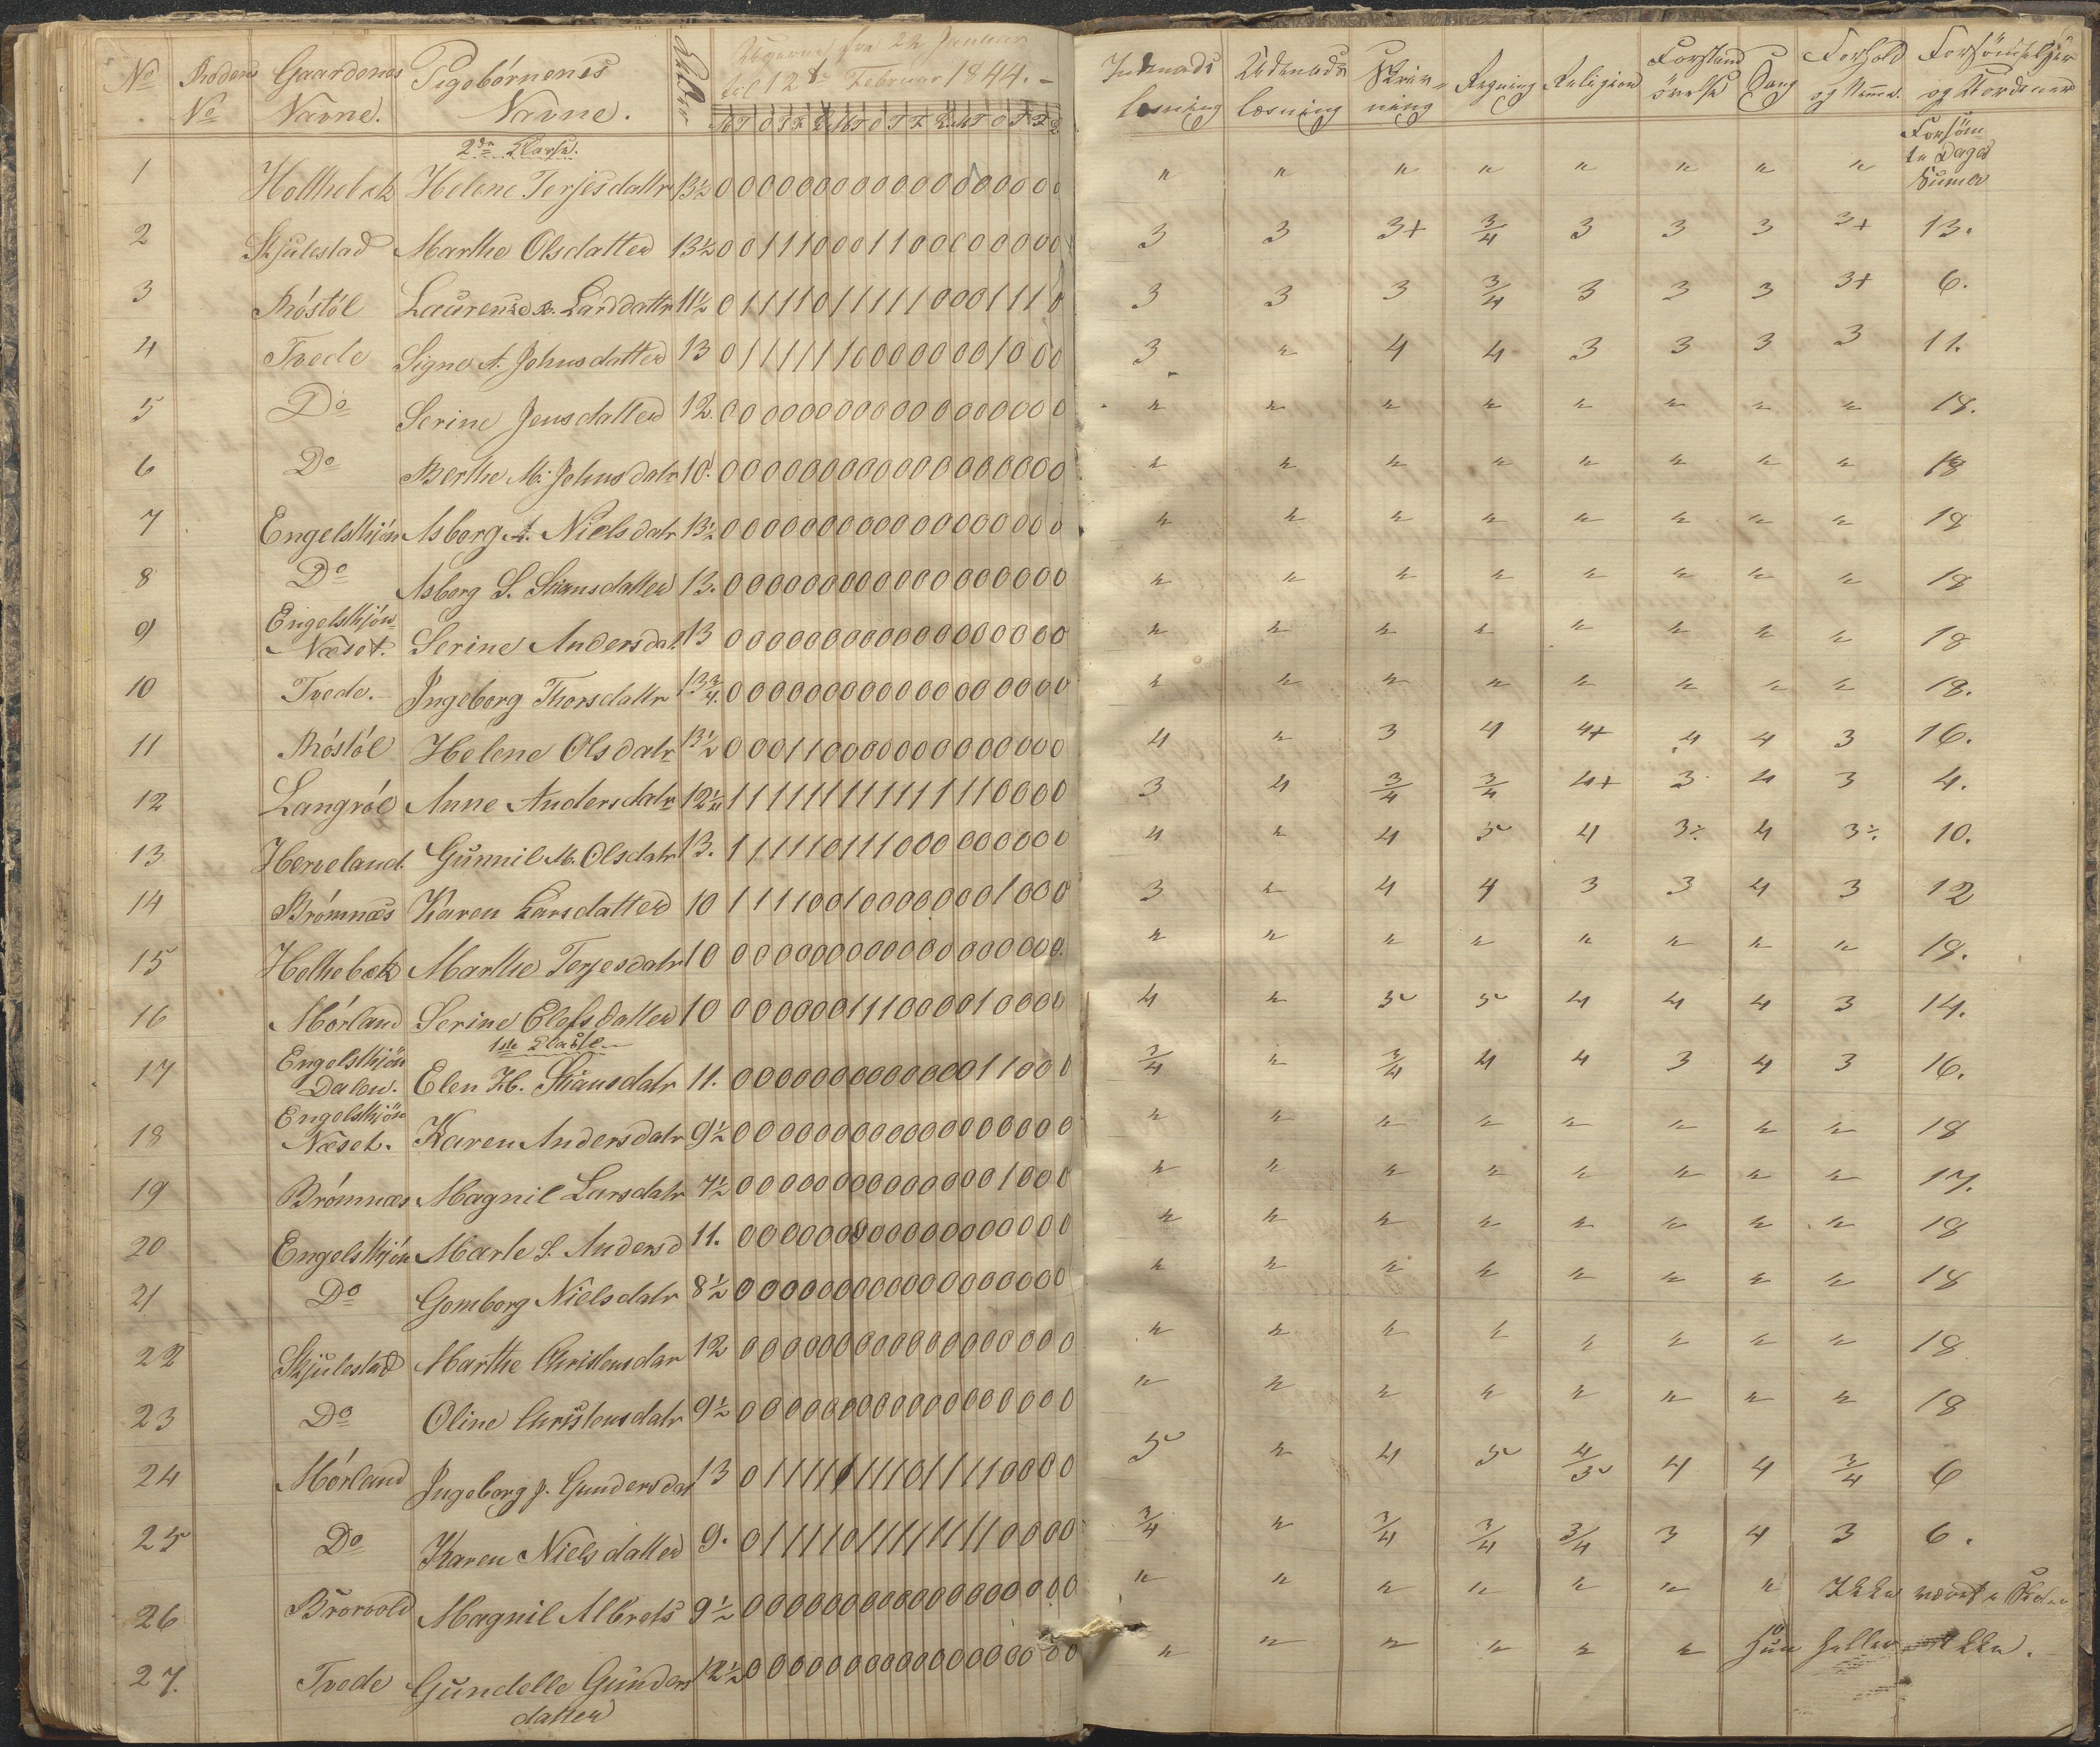 No Rodens Gaardenes Pigebørnenes Alder Ugerne fra 22 Januar
No Navne. Navne. til 12te Februar 1844. –
M T O T F L M T O T F L M T O T F L
Indenads Udenads Skriv= Regning Religion Forstands Sang Forhold Forsömmelser
læsning læsning ning övelse og Nemme. og
2den Classe.
Forsöm
te Dage
1 Holthebek Helene Terjesdattr 13½ 0 0 0 0 0 0 0 0 0 0 0 0 0 0 0 0 0 0 " " " " " " " "
2 Skjulestad Marthe Olsdatter 13½ 0 0 1 1 1 0 0 0 1 1 0 0 0 0 0 0 0 0 3 3 3+ 3/4 3 3 3 3+ 13.
3 Röstöl Laurense Larsdattr 11½ 0 1 1 1 1 0 1 1 1 1 1 0 0 0 1 1 1 0 3 3 3 3/4 3 3 3 3+ 6.
4 Tvede Signe A. Johnsdatter 13 0 1 1 1 1 1 1 0 0 0 0 0 0 0 1 0 0 0 3 " 4 4 3 3 3 3 11.
5 Do Serine Jensdatter 12. 0 0 0 0 0 0 0 0 0 0 0 0 0 0 0 0 0 0 " " " " " " " " 18.
6 Do Berthe M. Johnsdatr 10. 0 0 0 0 0 0 0 0 0 0 0 0 0 0 0 0 0 0 " " " " " " " " 18
7 Engelskjön Asborg A. Nielsdatr 13½ 0 0 0 0 0 0 0 0 0 0 0 0 0 0 0 0 0 0 " " " " " " " " 18
8 Do Asborg S. Stiansdatter 13. 0 0 0 0 0 0 0 0 0 0 0 0 0 0 0 0 0 0 " " " " " " " " 18
9 Engelskjön
Næset. Serine Andersdat. 13 0 0 0 0 0 0 0 0 0 0 0 0 0 0 0 0 0 0 " " " " " " " " 18
10 Tvede. Ingeborg Thorsdattr 13¾. 0 0 0 0 0 0 0 0 0 0 0 0 0 0 0 0 0 0 " " " " " " " " 18.
11 Röstöl Helene Olsdatr 13½ 0 0 0 1 1 0 0 0 0 0 0 0 0 0 0 0 0 0 4 " 3 4 4+ 4 4 3 16.
12 Langröl Anne Andersdatr 12¼ 1 1 1 1 1 1 1 1 1 1 1 1 1 1 0 0 0 0 3 4 3/4 3/4 4+ 3 4 3 4.
13 Herveland. Gunnil M. Olsdatr 13. 1 1 1 1 1 0 1 1 1 0 0 0 0 0 0 0 0 0 4 " 4 5 4 3÷ 4 3÷ 10.
14 Brömnæs Karen Larsdatter 10 1 1 1 1 0 0 1 0 0 0 0 0 0 0 1 0 0 0 3 " 4 4 3 3 4 3 12
15 Holthebek Marthe Terjesdatr 10 0 0 0 0 0 0 0 0 0 0 0 0 0 0 0 0 0 0 " " " " " " " " 18.
16 Mörland Serine Elefsdatter 10 0 0 0 0 0 0 1 1 1 0 0 0 0 1 0 0 0 0 4 " 5 5 4 4 4 3 14.
1ste Classe
17 Engelskjön
Dalen. Elen H. Stiansdatr 11. 0 0 0 0 0 0 0 0 0 0 0 0 0 1 1 0 0 0 3/4 " 3/4 4 4 3 4 3 16.
18 Engelskjön
Næset. Karen Andersdatr 9½ 0 0 0 0 0 0 0 0 0 0 0 0 0 0 0 0 0 0 " " " " " " " " 18
19 Brömnæs Magnil Larsdatr 7½ 0 0 0 0 0 0 0 0 0 0 0 0 0 0 1 0 0 0 " " " " " " " " 17.
20 Engelskjön Marte S. Andersd 11. 0 0 0 0 0 0 0 0 0 0 0 0 0 0 0 0 0 0 " " " " " " " " 18
21 Do Gomborg Nielsdatr 8½ 0 0 0 0 0 0 0 0 0 0 0 0 0 0 0 0 0 0 " " " " " " " " 18
22 Skjulestad Marthe Christensdar 12 0 0 0 0 0 0 0 0 0 0 0 0 0 0 0 0 0 0 " " " " " " " " 18
23 Do Oline Christensdatr 9½ 0 0 0 0 0 0 0 0 0 0 0 0 0 0 0 0 0 0 " " " " " " " " 18
24 Mörland Ingeborg J. Gundersdat 13 0 1 1 1 1 1 1 1 1 0 1 1 1 1 0 0 0 0 5 " 4 5 4/5 4 4 3/4 6
25 Do Karen Nielsdatter 9. 0 1 1 1 1 0 1 1 1 1 1 1 1 1 0 0 0 0 3/4 " 3/4 3/4 3/4 3 4 3 6.
26 Brörvold Magnil Albrets 9½ 0 0 0 0 0 0 0 0 0 0 0 0 0 0 0 0 0 0 " " " " " " " Ikke været
27. Tvede Gundelle Gunders 12½ 0 0 0 0 0 0 0 0 0 0 0 0 0 0 0 0 0 0 " " " " " " hun heller ikke.
datter